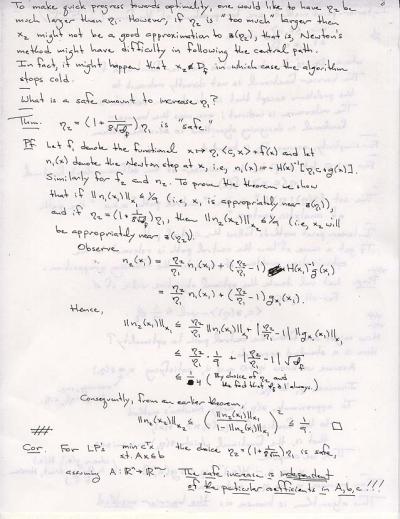 To make quick progress towards optimality, one would like to have η₂ be
much larger than η₁. However, if η₂ is "too much" larger then
x₂ might not be a good approximation to z(η₂), that is, Newton's
method might have difficulty in following the central path.
In fact, it might happen that x₂ ∉ D_f in which case the algorithm
stops cold.
What is a safe amount to increase η₁?
Thm. η₂ = (1 + 1/(8√ϑ_f)) η₁ is "safe."
Pf Let f₁ denote the functional x ↦ η₁⟨c,x⟩ + f(x) and let
n₁(x) denote the Newton step at x, i.e., n₁(x) := -H(x)⁻¹[η₁c + g(x)].
Similarly for f₂ and n₂. To prove the theorem we show
that if ‖n₁(x₁)‖_x₁ ≤ 1/9 (i.e., x₁ is appropriately near z(η₁)),
and if η₂ = (1 + 1/(8√ϑ_f)) η₁, then ‖n₂(x₂)‖_x₂ ≤ 1/9 (i.e., x₂ will
be appropriately near z(η₂)).
Observe
n₂(x₁) = η₂/η₁ n₁(x₁) + (η₂/η₁ - 1) H(x₁)⁻¹ g(x₁)
= η₂/η₁ n₁(x₁) + (η₂/η₁ - 1) g_x₁(x₁).
Hence,
‖n₂(x₁)‖_x₁ ≤ η₂/η₁ ‖n₁(x₁)‖_x₁ + |η₂/η₁ - 1| ‖g_x₁(x₁)‖_x₁
≤ η₂/η₁ · 1/9 + |η₂/η₁ - 1| √ϑ_f
≤ 1/4 (By choice of η₂ and
the fact that ϑ_f ≥ 1 always.)
Consequently, from an earlier theorem,
‖n₂(x₂)‖_x₂ ≤ (‖n₂(x₁)‖_x₁ / (1 - ‖n₂(x₁)‖_x₁))² ≤ 1/9 □
Cor. For LP's min cᵀx the choice η₂ = (1 + 1/(8√m)) η₁ is safe,
st. Ax ≤ b
assuming A: ℝⁿ → ℝᵐ. The safe increase is independent
of the particular coefficients in A, b, c!!!